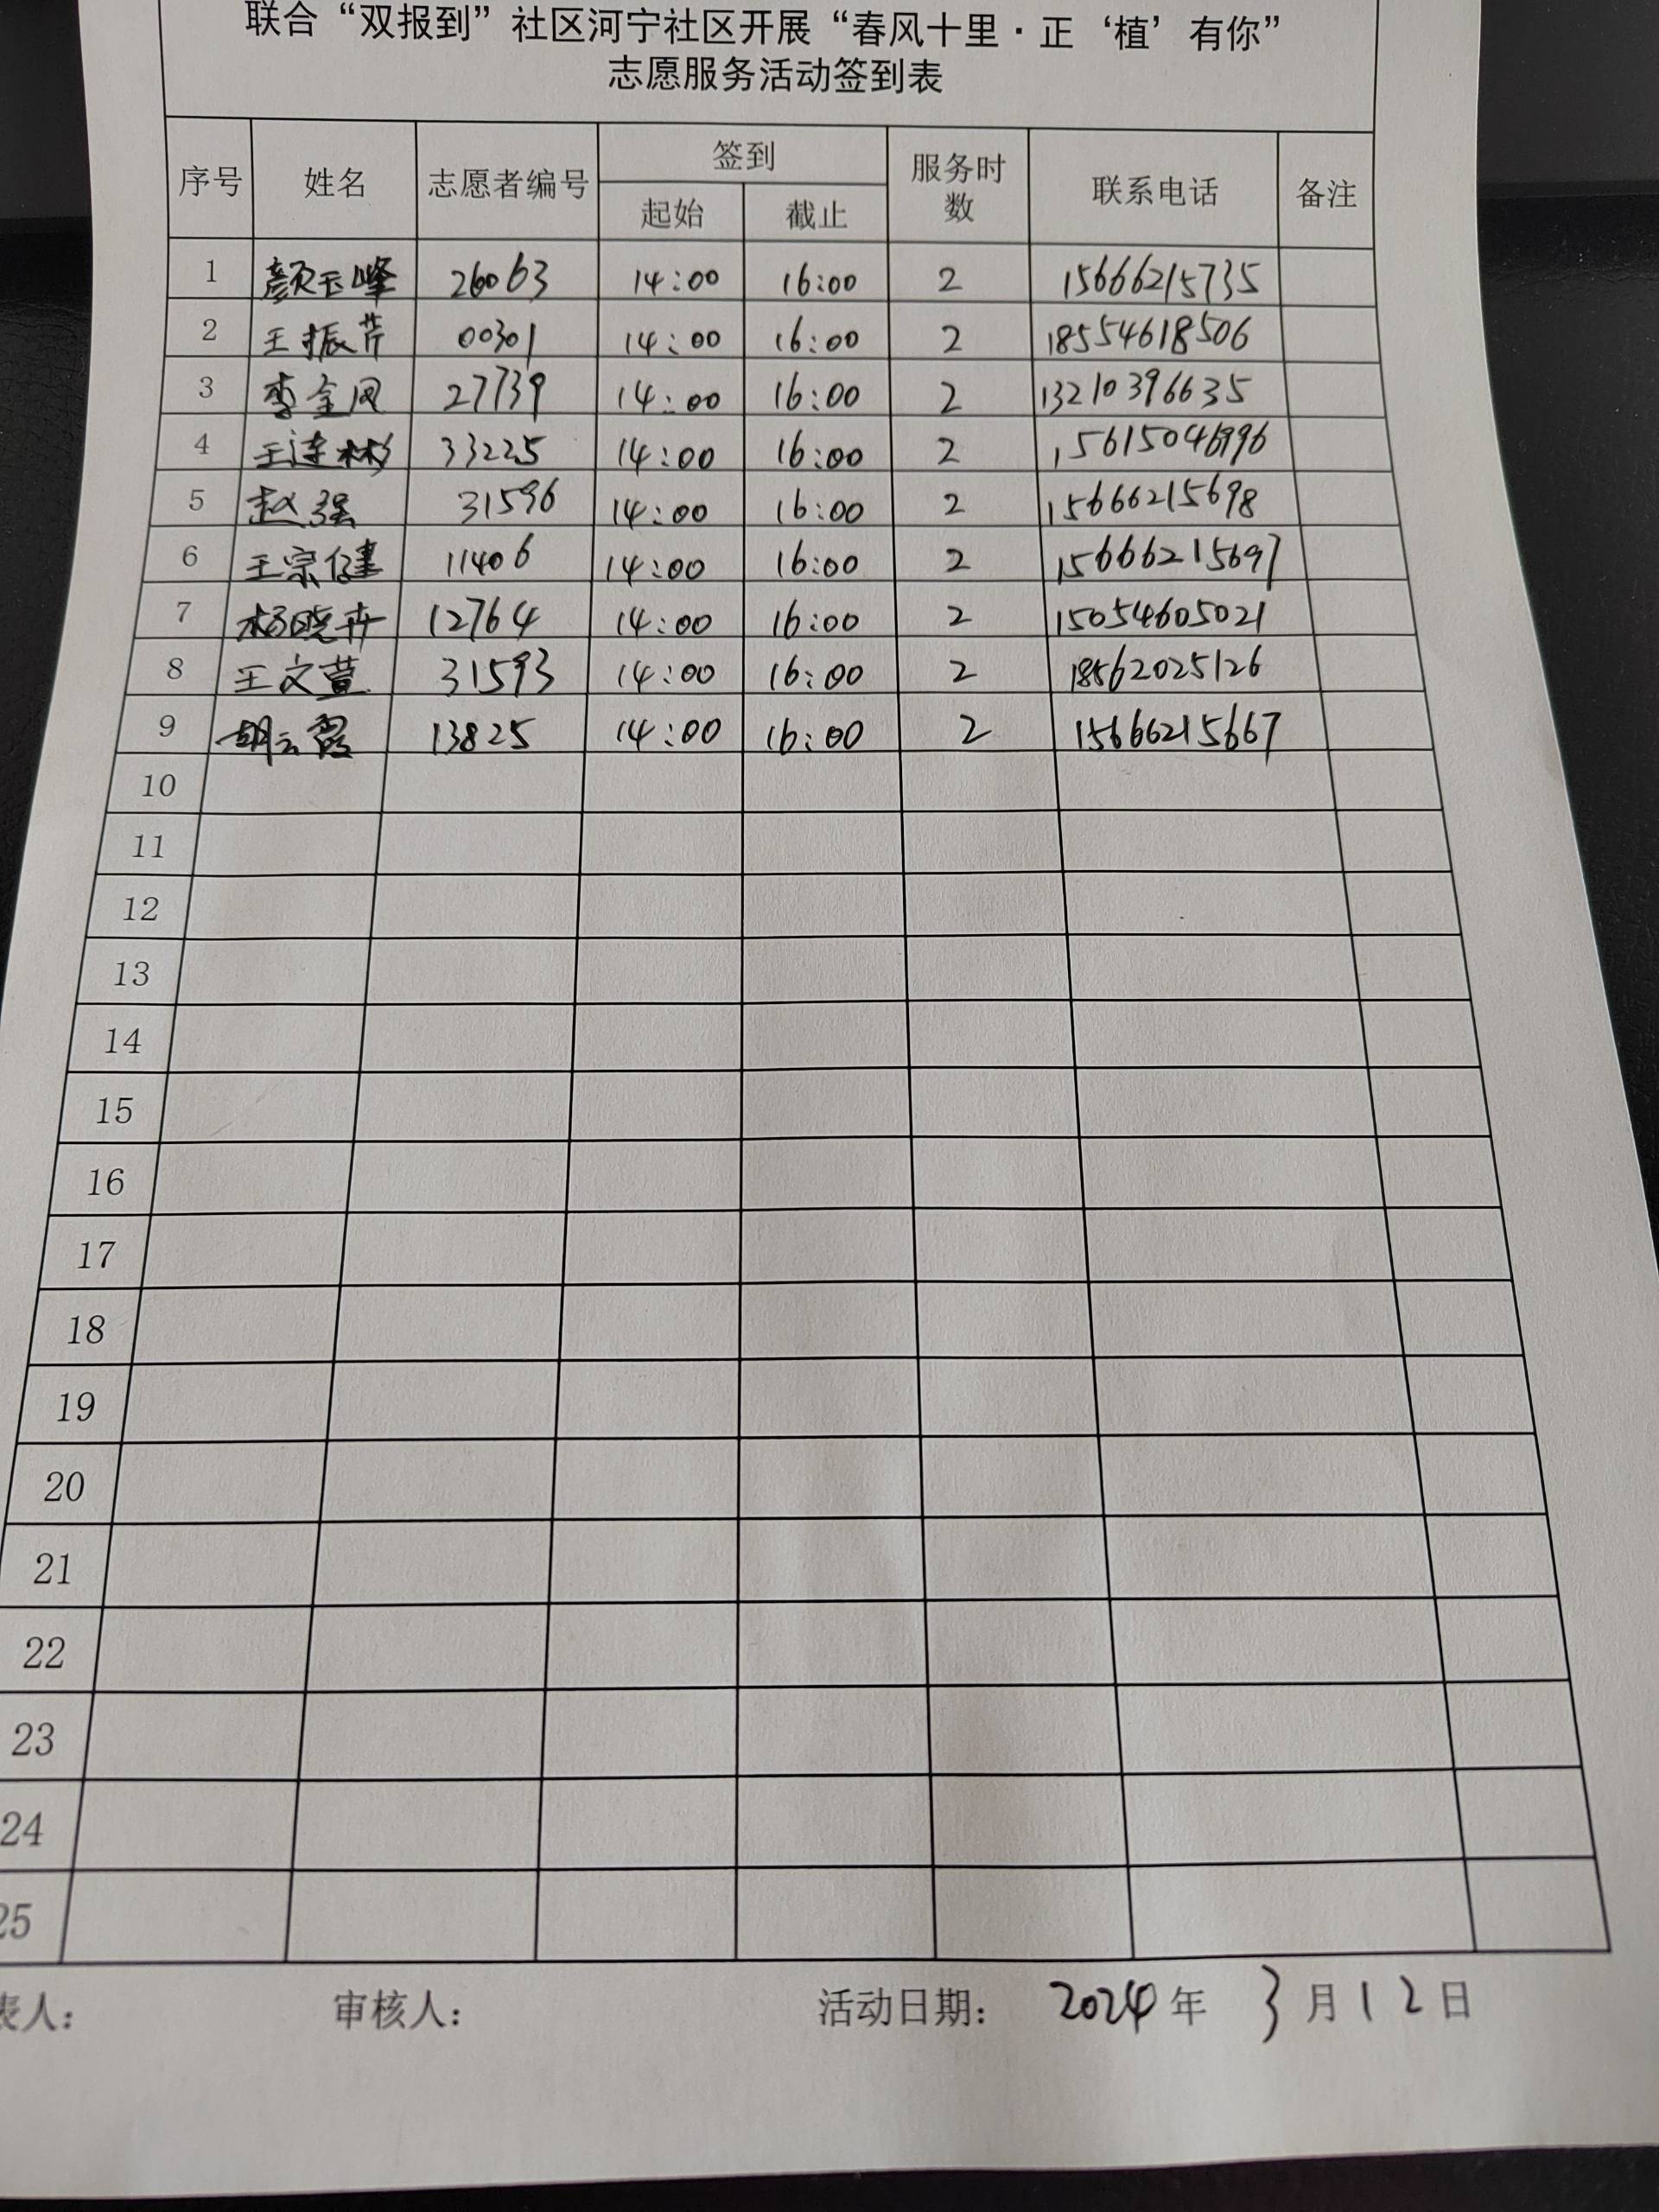 联合“双报到”社区河宁社区开展“春风十里·正‘植’有你”
志愿服务活动签到表
序号 姓名 志愿者编号 签到 服务时数 联系电话 备注
起始 截止
1 颜玉峰 26063 14:00 16:00 2 15666215735
2 王振芹 00301 14:00 16:00 2 18554618506
3 李金凤 27739 14:00 16:00 2 13210396635
4 王连彬 33225 14:00 16:00 2 15615046996
5 赵强 31596 14:00 16:00 2 15666215698
6 王宗健 11406 14:00 16:00 2 15666215697
7 杨晓卉 12764 14:00 16:00 2 15054605021
8 王文萱 31593 14:00 16:00 2 18562025126
9 胡云霞 13825 14:00 16:00 2 15666215667
10
11
12
13
14
15
16
17
18
19
20
21
22
23
24
25
表人： 审核人： 活动日期： 2024年 3月12日